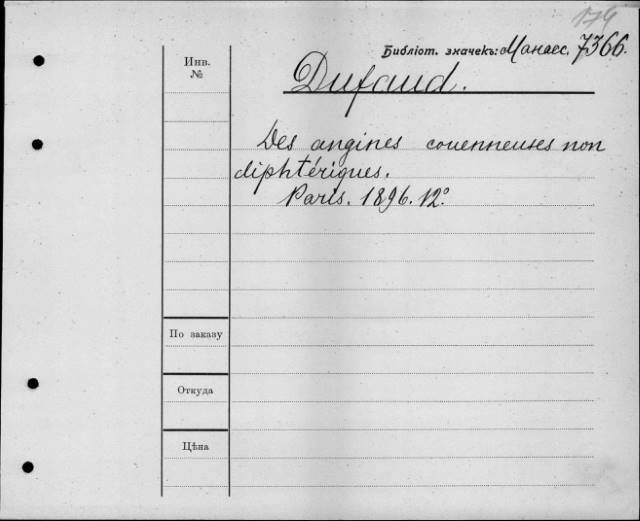 174
Библіот. значекъ: Манасс. 7366.
Инв.
№
Dufaud.
Des angines couenneuses non
diphtériques.
Paris. 1896. 12°.
По заказу
Откуда
Цѣна